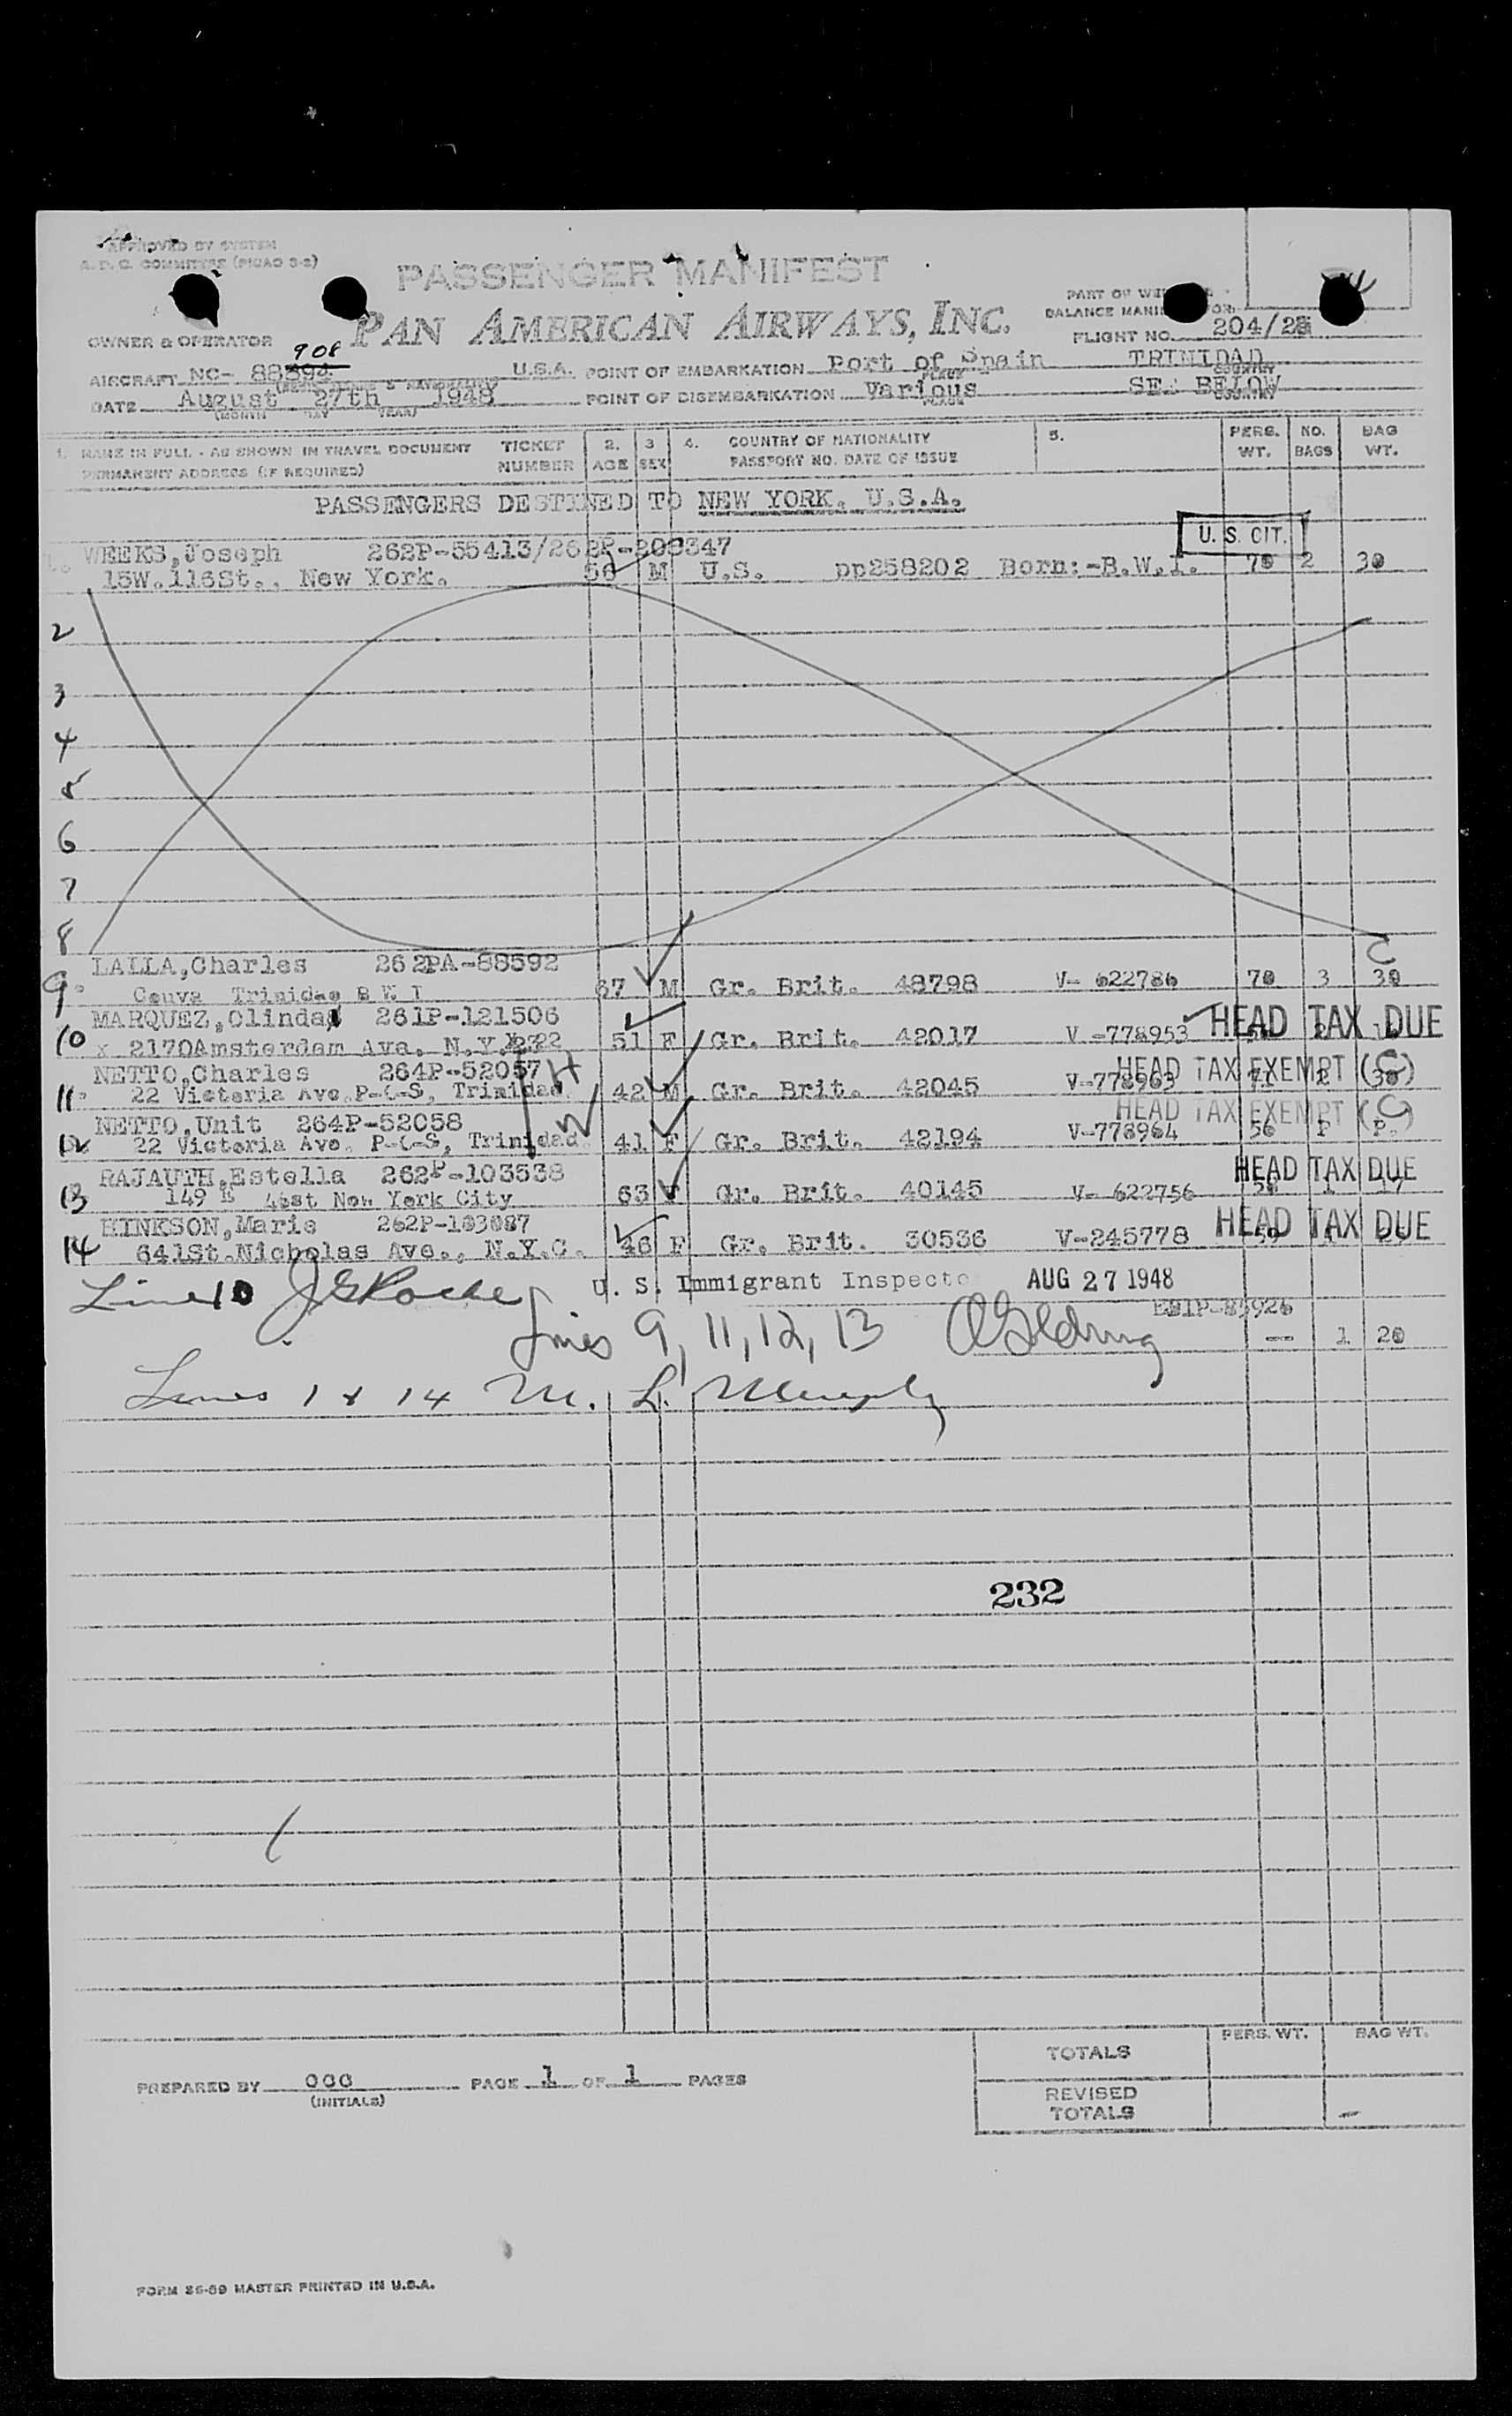 APPROVED BY SYSTEM
A.P.C. COMMITTEE (PICAO 3-2)
PASSENGER MANIFEST
PAN AMERICAN AIRWAYS, INC.
PART OF
BALANCE
OWNER & OPERATOR
FLIGHT NO. 204/28
908
AIRCRAFT NC- 88894 U.S.A. POINT OF EMBARKATION Port of Spain TRINIDAD
DATE August 27th 1948 POINT OF DISEMBARKATION Various SEE BELOW
(MONTH DAY YEAR) PLACE COUNTRY
1. NAME IN FULL - AS SHOWN IN TRAVEL DOCUMENT TICKET 2. 3 4. COUNTRY OF NATIONALITY 5. PERS. NO. BAG
PERMANENT ADDRESS (IF REQUIRED) NUMBER AGE SEX PASSPORT NO. DATE OF ISSUE WT. BAGS WT.
PASSENGERS DESTINED TO NEW YORK, U.S.A.
U. S. CIT.
WEEKS,Joseph 262P-55413/262P-208347
15W.116St., New York. 56 M U.S. pp258202 Born:-B.W.I. 70 2 30
2
3
4
5
6
7
8
LALLA,Charles 262PA-88592 C
9. Couva Trinidad B W I 67 M Gr. Brit. 48798 V- 622786 70 3 30
MARQUEZ,Olinda 261P-121506 HEAD TAX DUE
10 x 2170Amsterdam Ave. N.Y. 51 F Gr. Brit. 42017 V -778953
NETTO,Charles 264P-52057 H HEAD TAX EXEMPT (C)
11. 22 Victoria Ave P-O-S, Trinidad. 42 M Gr. Brit. 42045 V-778963 71 2 30
NETTO,Unit 264P-52058 W HEAD TAX EXEMPT (C)
12 22 Victoria Ave. P-O-S, Trinidad. 41 F Gr. Brit. 42194 V-778964 56 P P.
RAJAUTH,Estella 262P-103538 HEAD TAX DUE
13 149 E 46st New York City 63 F Gr. Brit. 40145 V- 622756
HINKSON,Marie 262P-103087 HEAD TAX DUE
14 641St.Nicholas Ave., N.Y.C. 46 F Gr. Brit. 30536 V-245778
Line 10 U. S. Immigrant Inspecto AUG 27 1948
-85926
Lines 9, 11, 12, 13 -- 1 20
Lines 1 & 14 M. L. Murphy
232
PERS. WT. BAG WT.
TOTALS
PREPARED BY OOO PAGE 1 OF 1 PAGES
(INITIALS)
REVISED
TOTALS
FORM 35-59 MASTER PRINTED IN U.S.A.